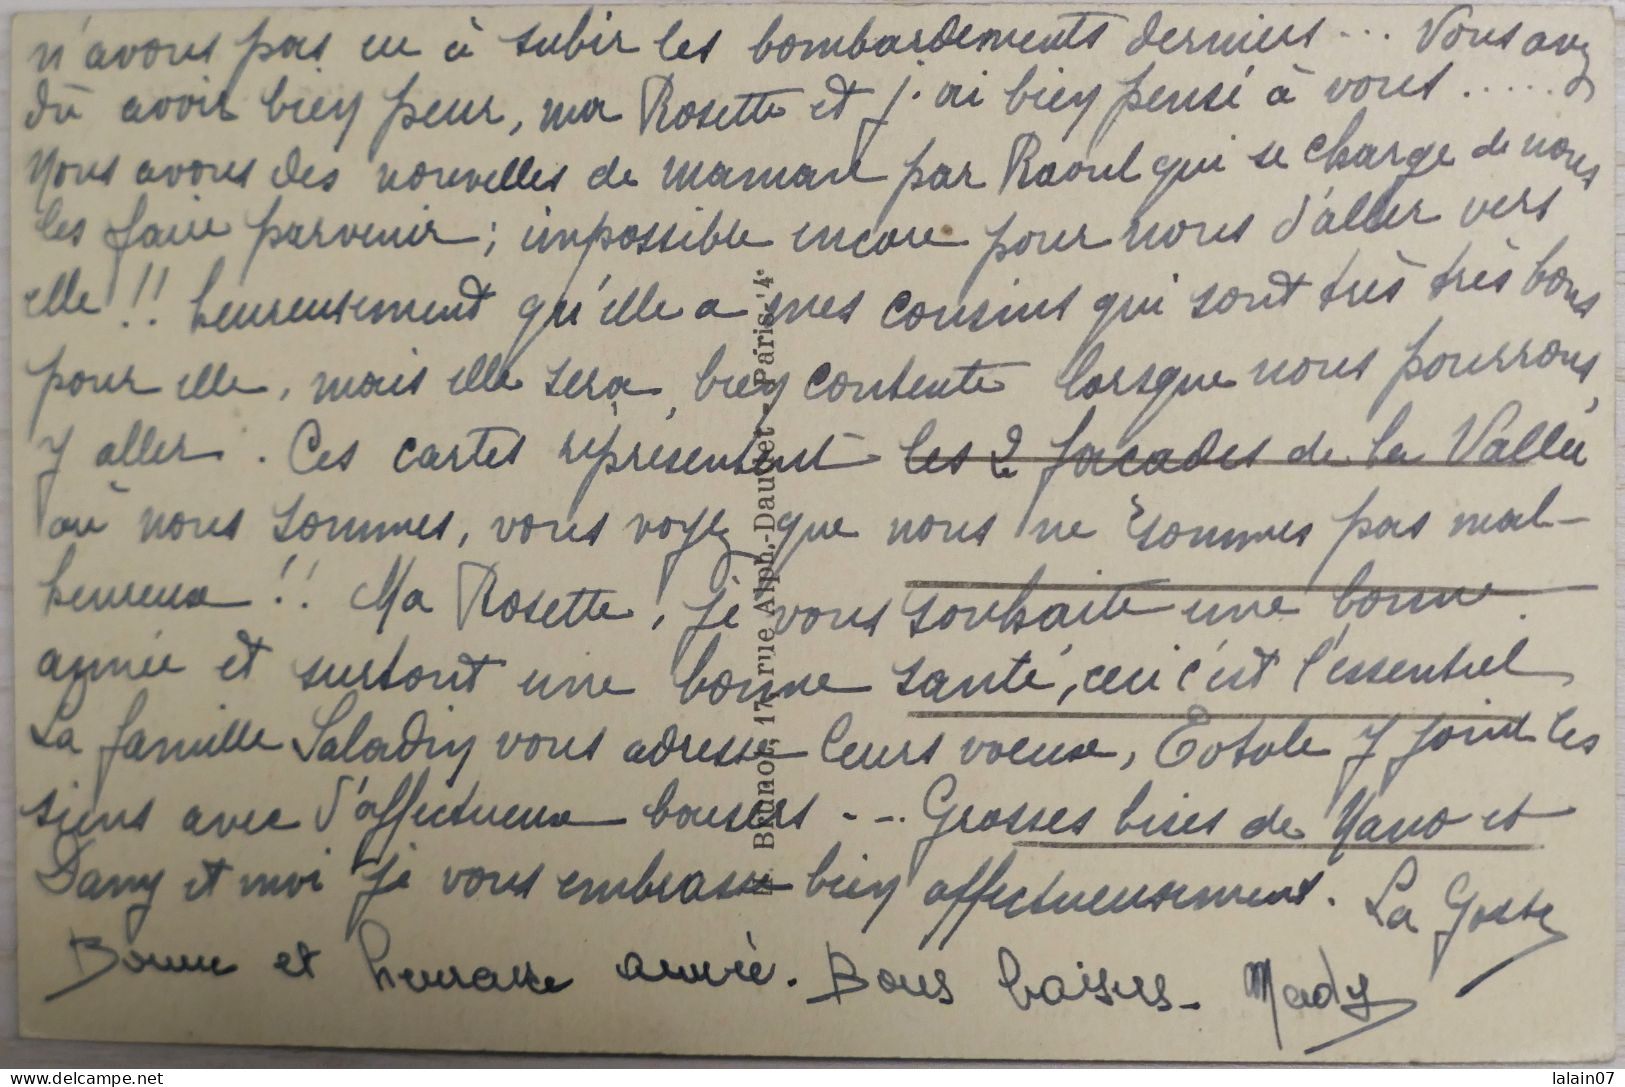 n'avons pas eu à subir les bombardements derniers... Vous avez
dû avoir bien peur, ma Rosette et j'ai bien pensé à vous.....
Nous avons des nouvelles de maman par Raoul qui se charge de nous
les faire parvenir; impossible encore pour nous d'aller vers
elle!! heureusement qu'elle a mes cousins qui sont très très bons
pour elle, mais elle sera bien contente lorsque nous pourrons
y aller. Ces cartes représentent les 2 facades de la Vallée
où nous sommes, vous voyez que nous ne sommes pas mal-
heureux!! Ma Rosette, je vous souhaite une bonne
année et surtout une bonne santé, ceci c'est l'essentiel
La famille Saladin vous adresse leurs voeux, y joint les
siens avec d'affectueux baisers -- Grosses bises de Nano et
Dany et moi je vous embrasse bien affectueusement. La Gosse
Bonne et heureuse année. Bons baisers - Mady
Brunot, 17, rue Alph.-Daudet - Paris. 14e
lalain07